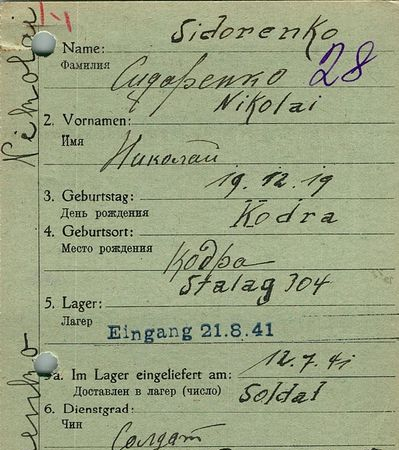 Sidorenko
Name:
Фамилия
Сидаренко
28
Nikolai
2. Vornamen:
Имя
Николай
19.12.19
3. Geburtstag:
День рождения
Kodra
4. Geburtsort:
Место рождения
Кодра
Stalag 304
5. Lager:
Лагер
Eingang 21.8.41
12.7.41
5a. Im Lager eingeliefert am:
Доставлен в лагер (число)
Soldat
6. Dienstgrad:
Чин
Солдат
Nikolai
enko